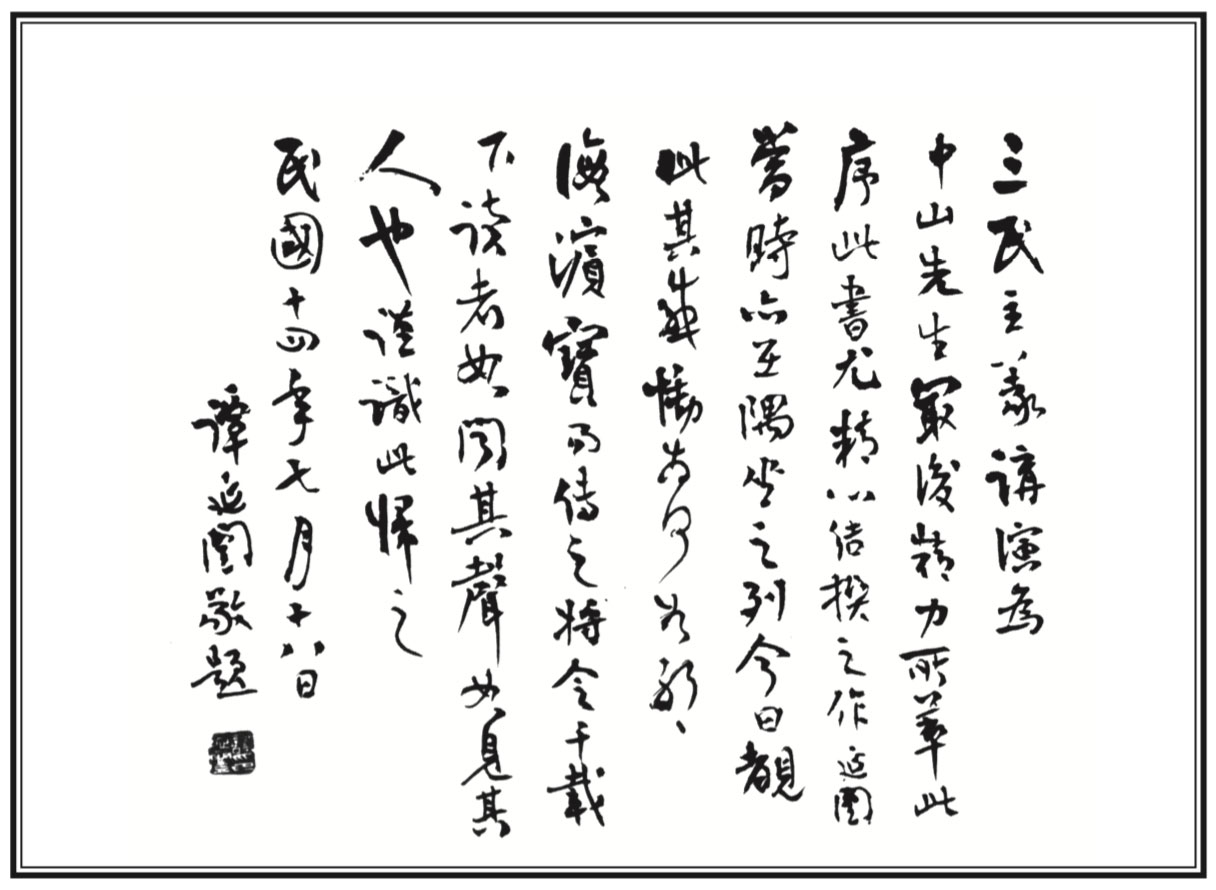 三民主義講演為
中山先生最後精力所萃此
序此書尤精心結撰之作延闓
當時亦在隅坐之列今日覩
此其感慟為何如耶
海濱寶而傳之將令千載
下讀者如聞其聲如見其
人也謹識此歸之
民國十四年七月十八日
譚延闓敬題